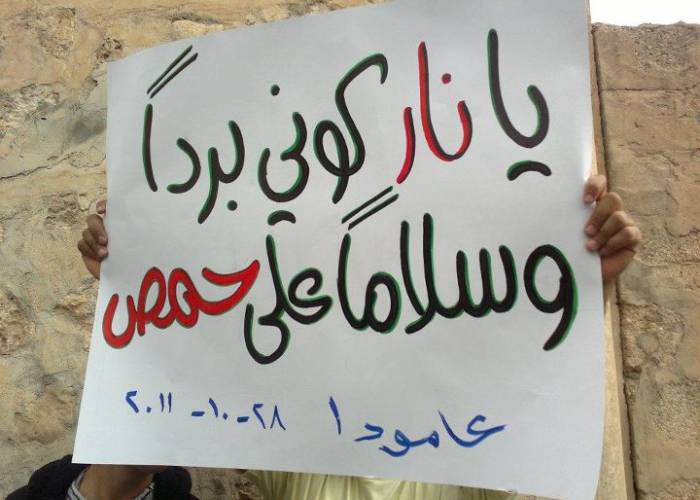 يا نار كوني برداً
وسلاماً على حمص
عامودا ٢٨-١٠-٢٠١١